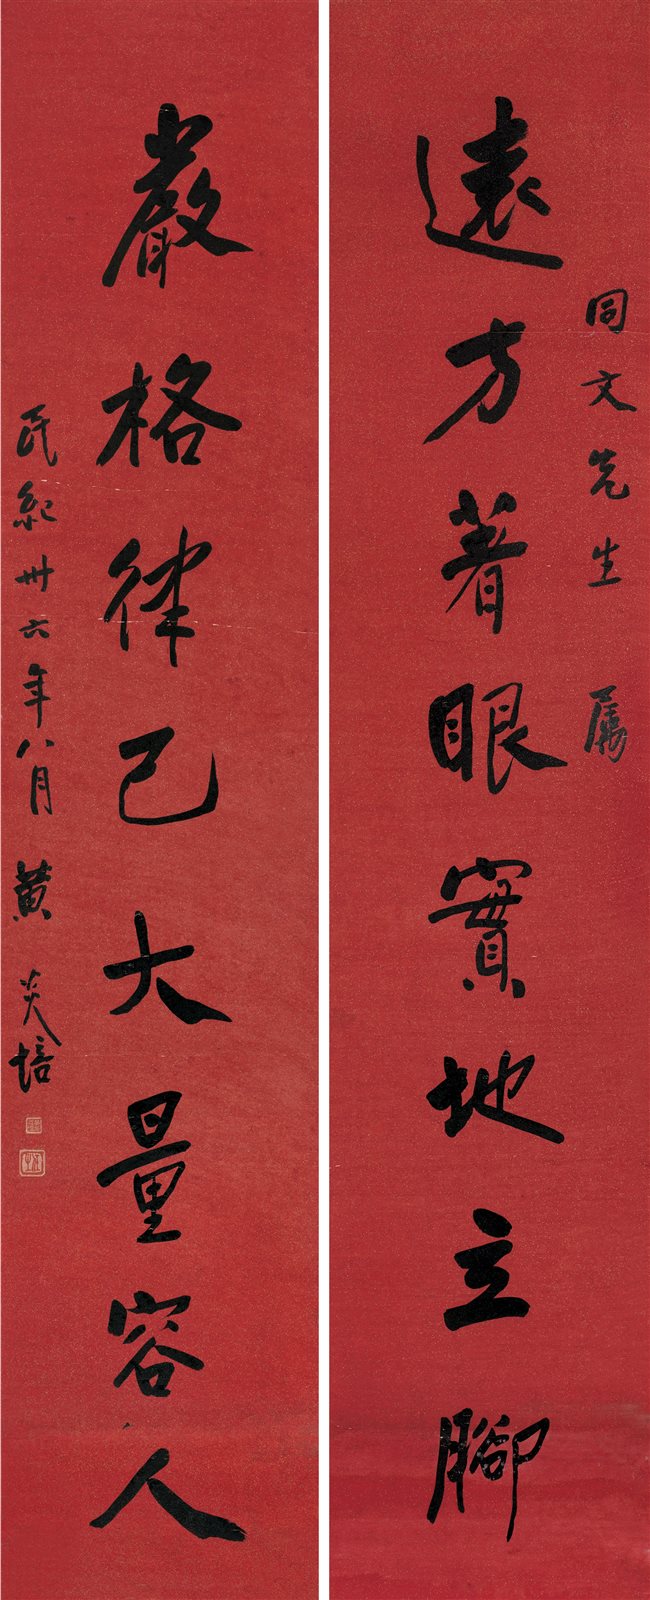 同文先生 属
遠方著眼實地立腳
嚴格律己大量容人
民紀卅六年八月 黄炎培